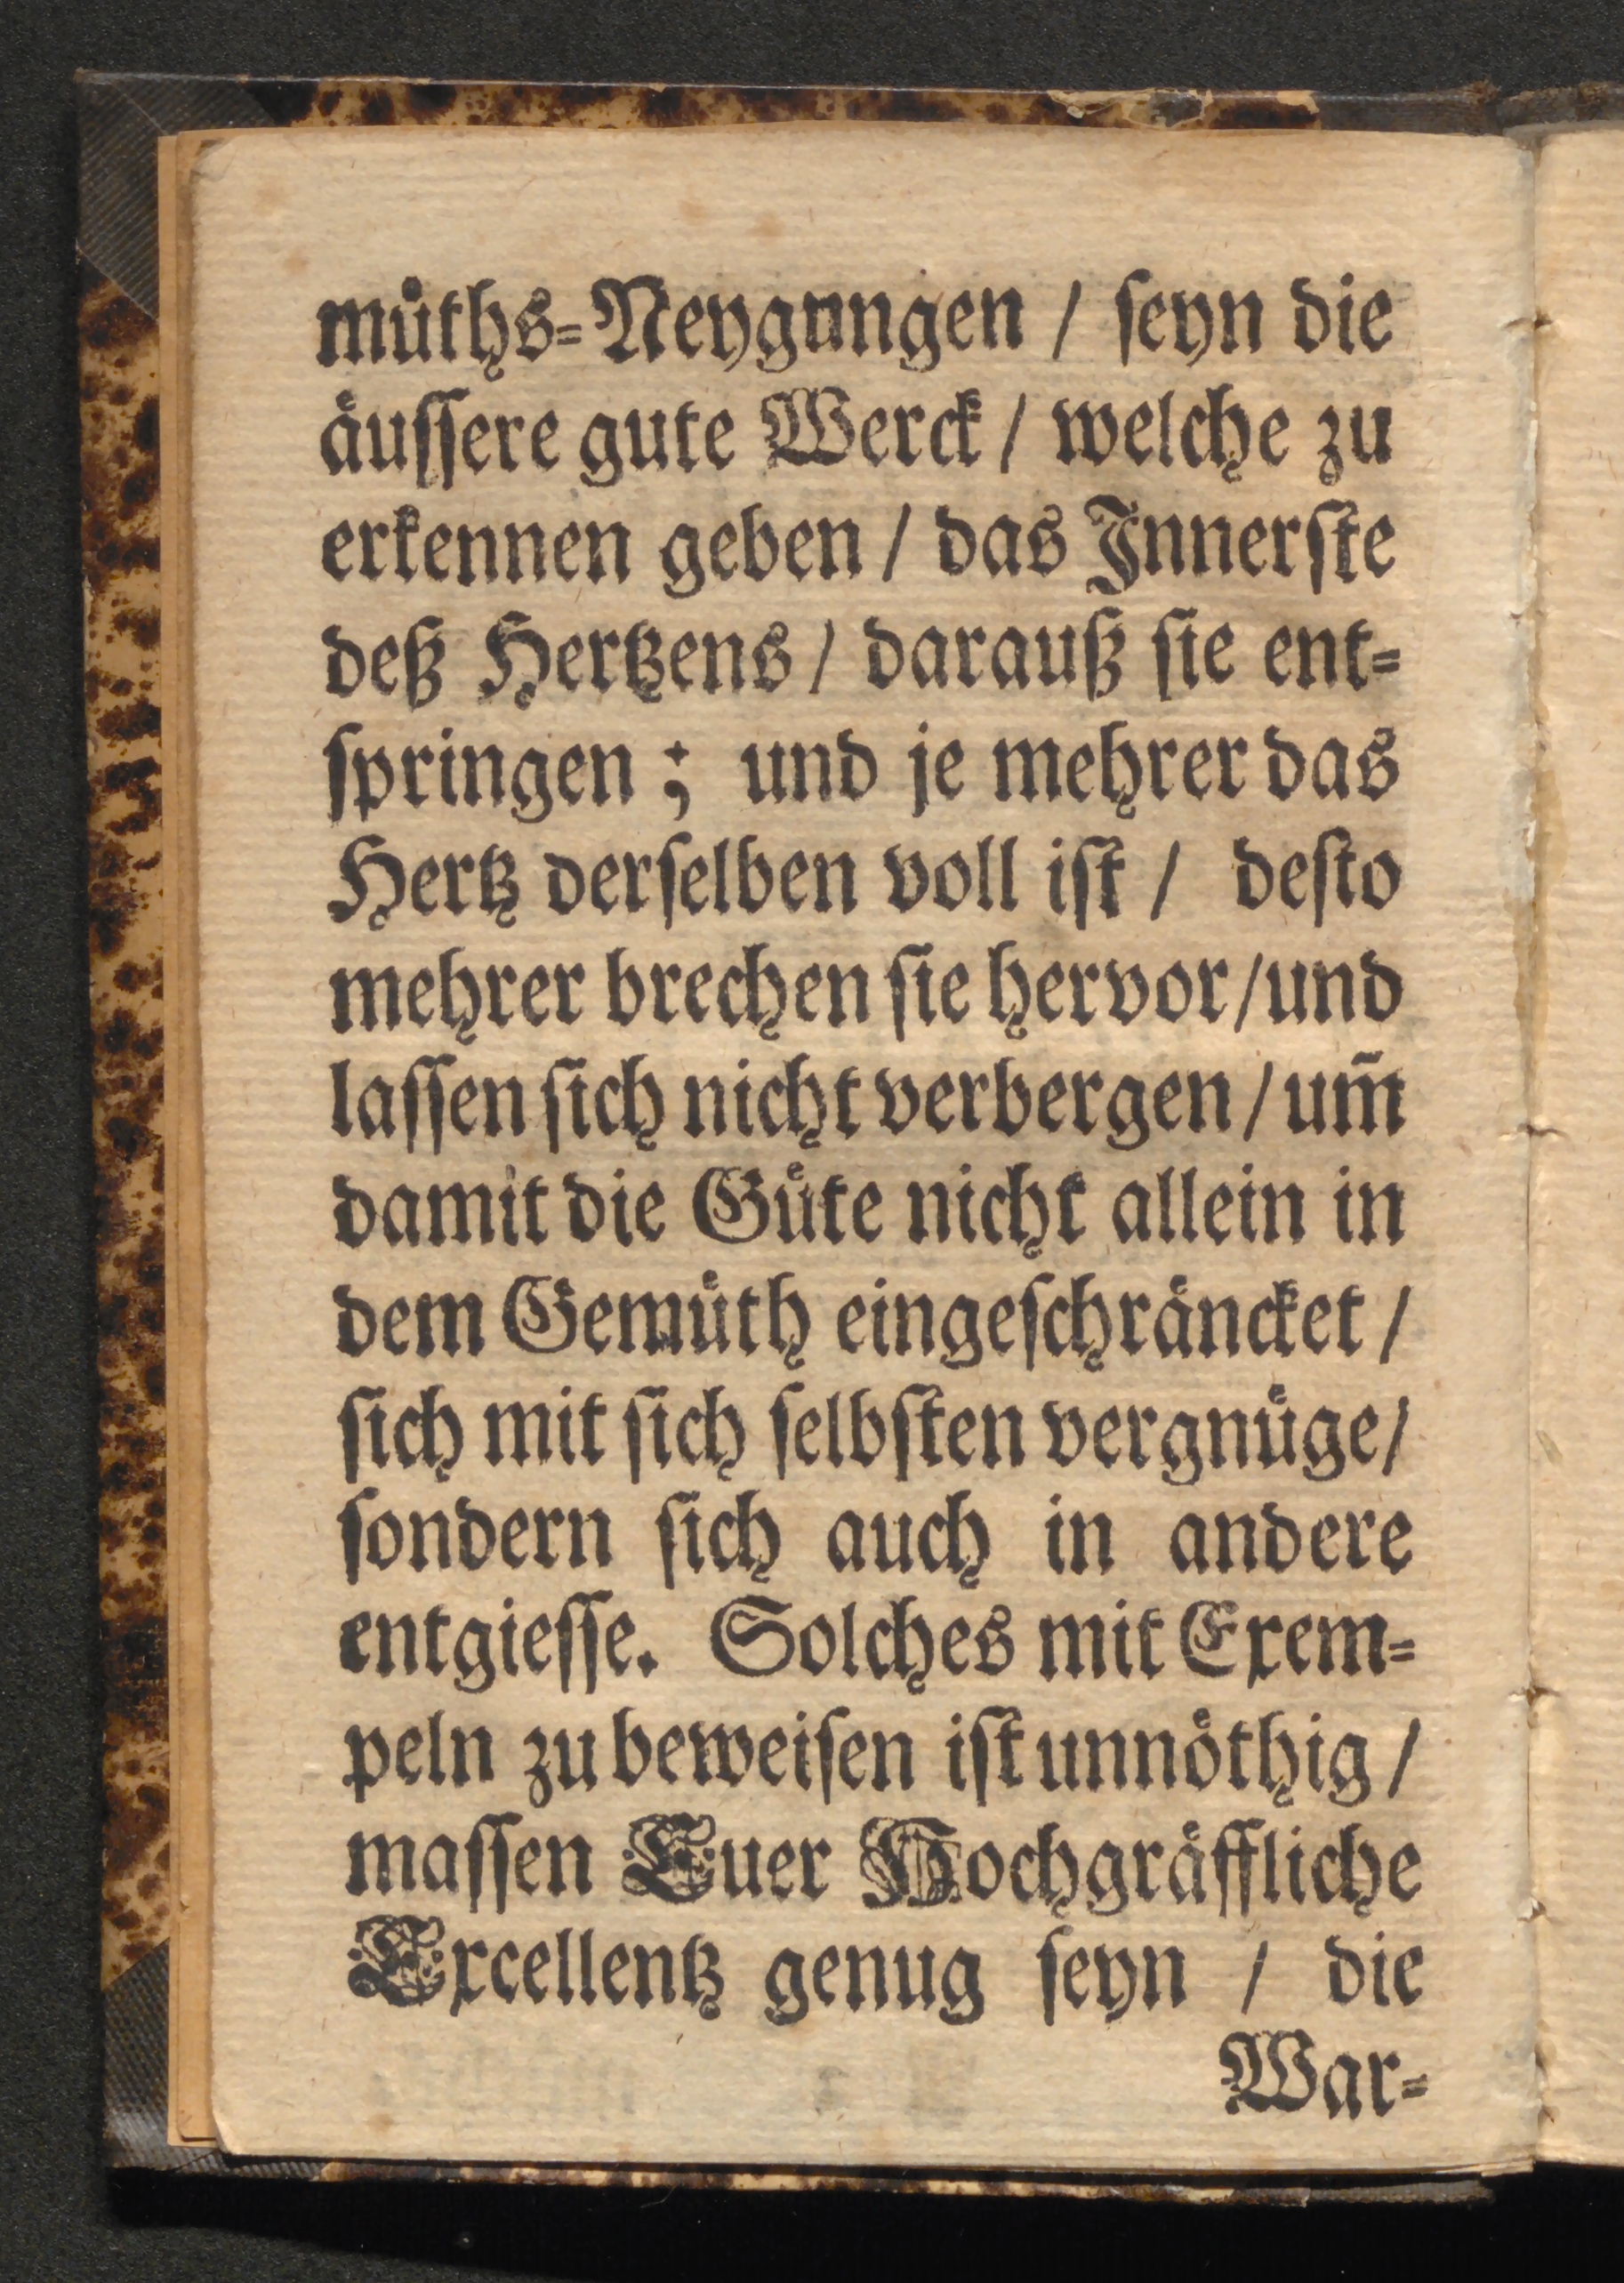 muͤths-Neygungen / ſeyn die
aͤuſſere gute Werck / welche zu
erkennen geben / das Innerſte
deß Hertzens / darauß ſie ent-
ſpringen ; und je mehrer das
Hertz derſelben voll iſt / deſto
mehrer brechen ſie hervor / und
laſſen ſich nicht verbergen / um̃
damit die Guͤte nicht allein in
dem Gemuͤth eingeſchraͤncket /
ſich mit ſich ſelbſten vergnuͤge /
ſondern ſich auch in andere
entgieſſe. Solches mit Exem-
peln zu beweiſen iſt unnoͤthig /
maſſen Euer Hochgraͤffliche
Excellentz genug ſeyn / die
War-